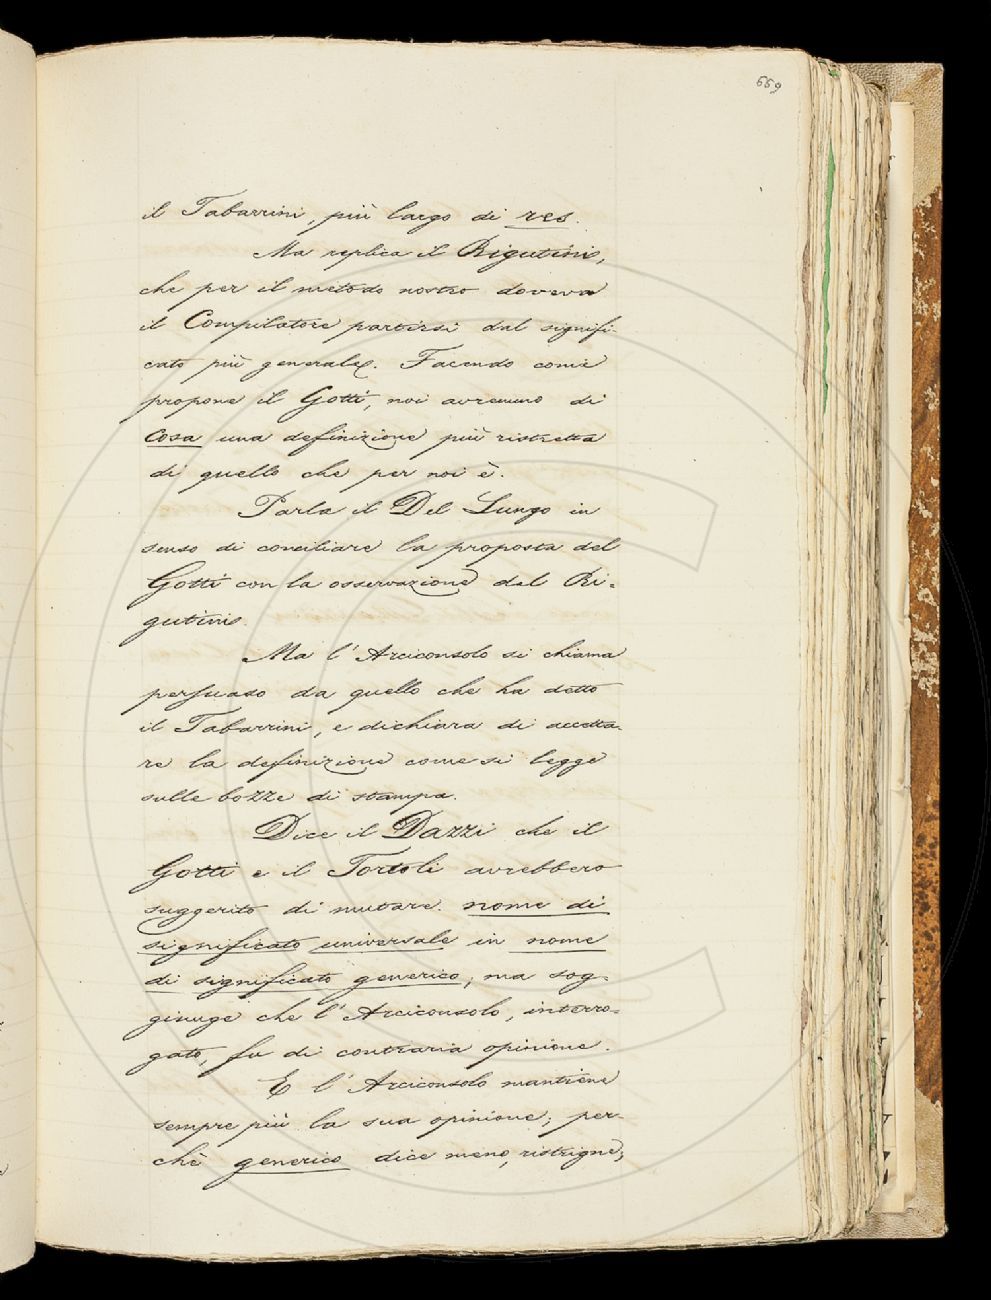 669
il Tabarrini, più largo di res.
Ma replica il Rigutini,
che per il metodo nostro doveva
il Compilatore partirsi dal signifi-
cato più generale. Facendo come
propone il Gotti, noi avremmo di
cosa una definizione più ristretta
di quello che per noi è.
Parla il Del Lungo in
senso di conciliare la proposta del
Gotti con la osservazione del Ri-
gutini.
Ma l'Arciconsolo si chiama
persuaso da quello che ha detto
il Tabarrini, e dichiara di accetta-
re la definizione come si legge
sulle bozze di stampa.
Dice il Dazzi che il
Gotti e il Tortoli avrebbero
suggerito di mutare nome di
significato universale in nome
di significato generico, ma sog-
giunge che l'Arciconsolo, interro-
gato, fu di contraria opinione.
E l'Arciconsolo mantiene
sempre più la sua opinione; per-
chè generico dice meno, ristrigne;